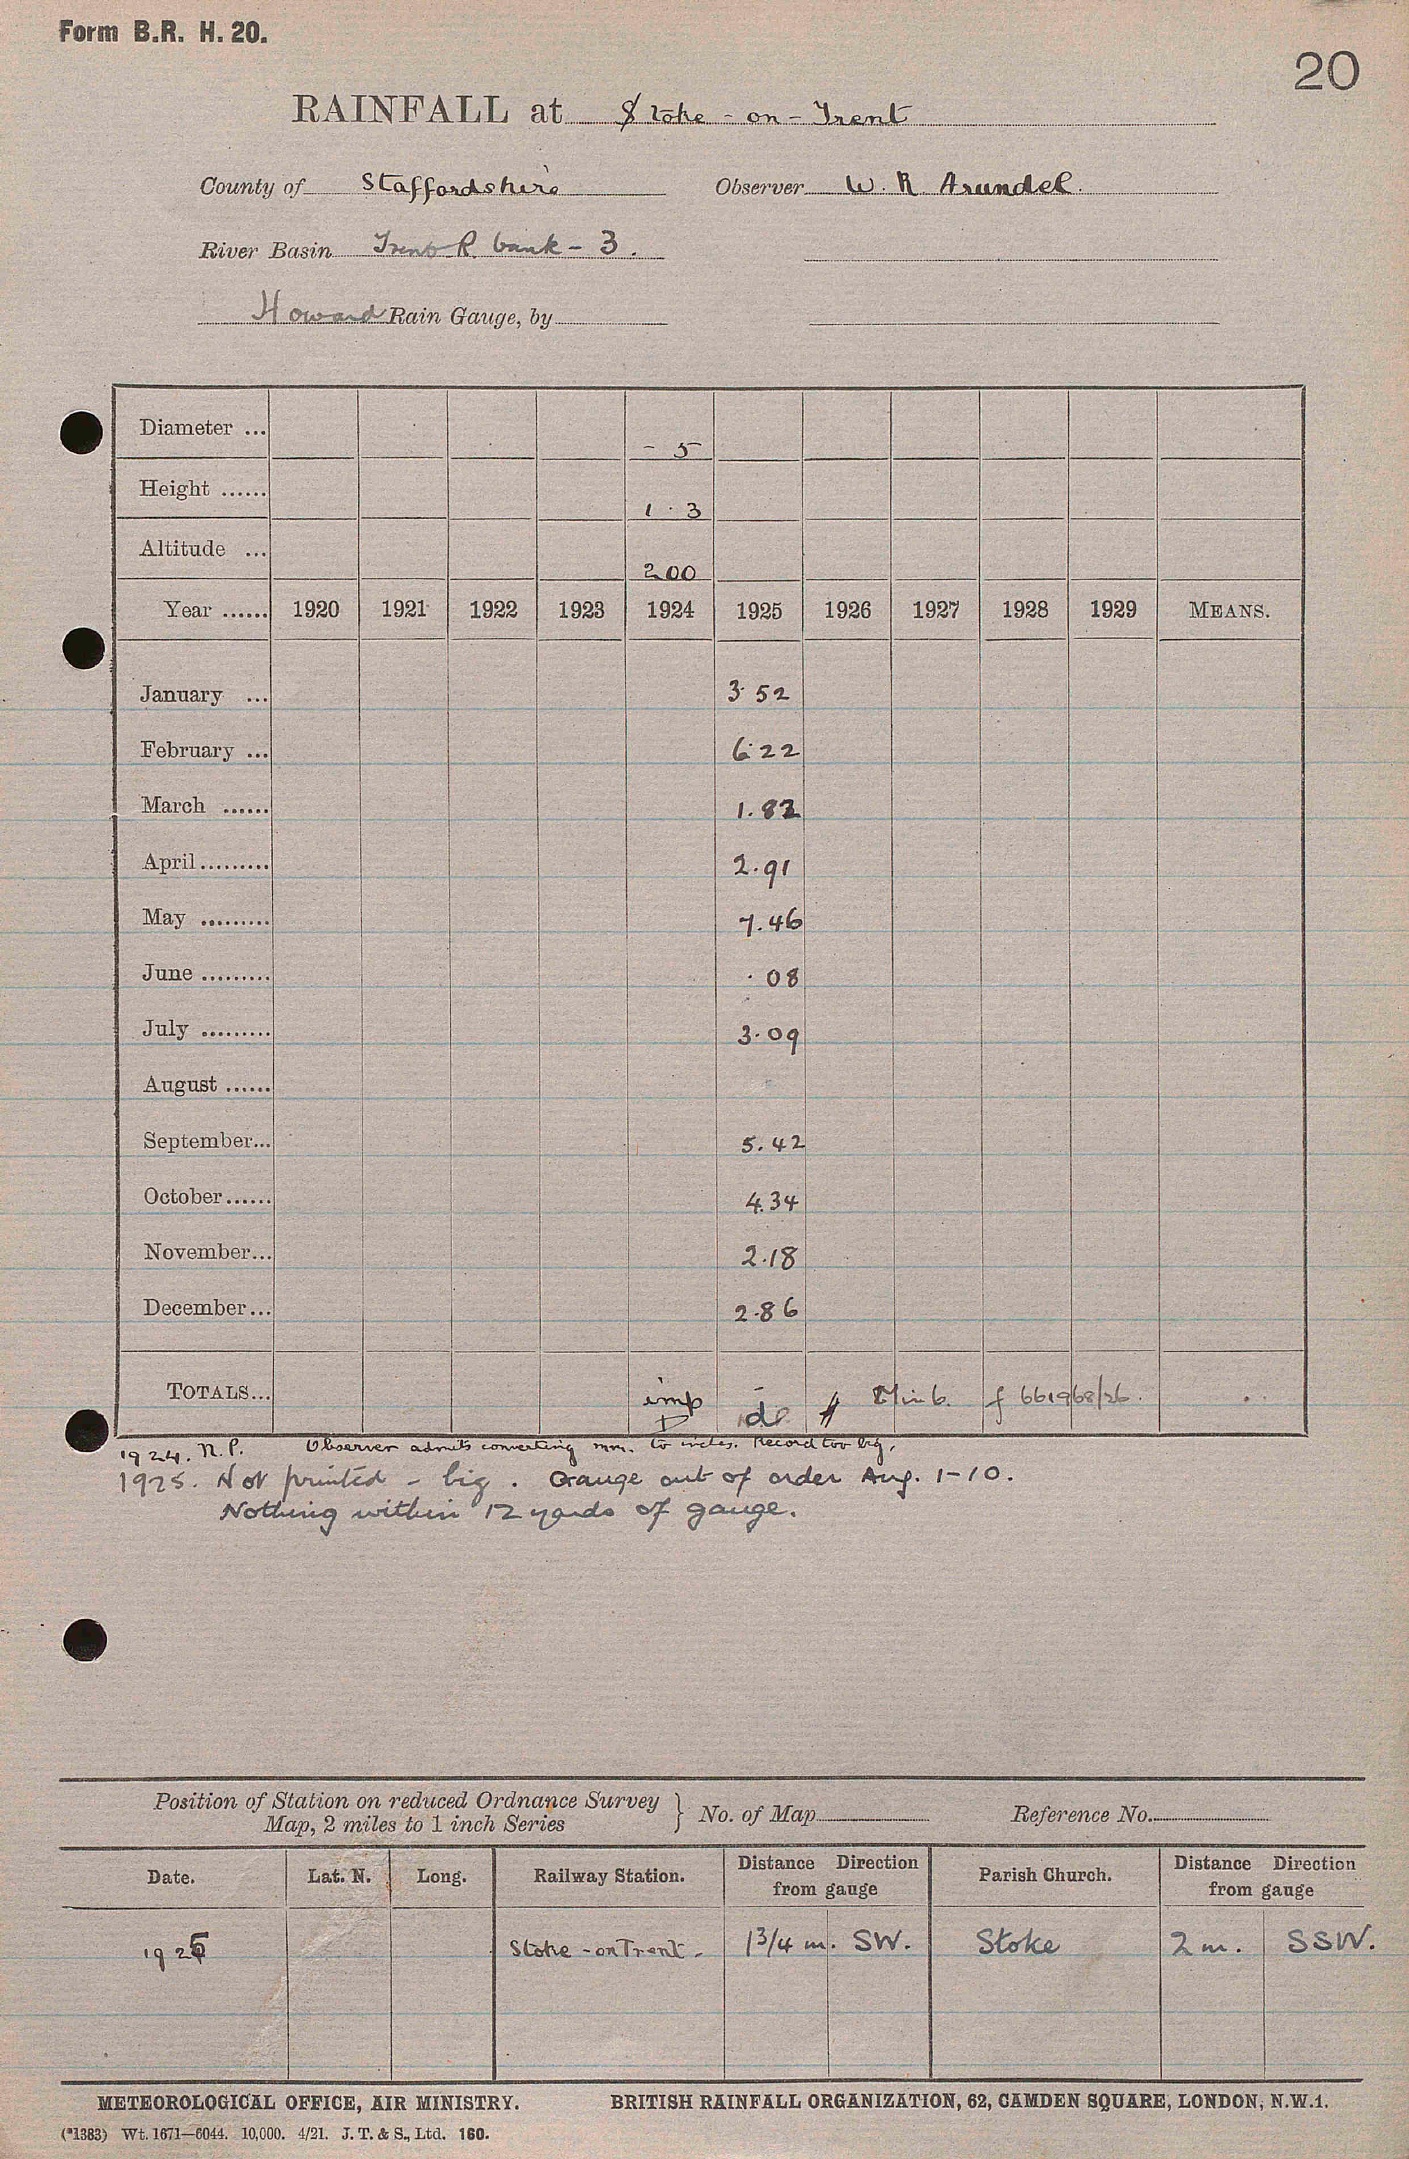 Form B.R. H. 20.
20
RAINFALL at Stoke-on-Trent
County of Staffordshire Observer W. R. Arundel.
River Basin Trent R. bank - 3.
Howard Rain Gauge, by
Diameter ... - 5
Height ...... 1 . 3
Altitude ... 200
Year ...... 1920 1921 1922 1923 1924 1925 1926 1927 1928 1929 MEANS.
January ... 3.52
February ... 6.22
March ...... 1.82
April ......... 2.91
May ......... 7.46
June ......... .08
July ......... 3.09
August ......
September... 5.42
October...... 4.34
November... 2.18
December... 2.86
TOTALS... imp f 661968/26.
1924. N.P. Observer admits converting mm. to inches. Record too big.
1925. Not printed - big. Gauge out of order Aug. 1-10.
Nothing within 12 yards of gauge.
Position of Station on reduced Ordnance Survey
Map, 2 miles to 1 inch Series } No. of Map Reference No.
Date. Lat. N. Long. Railway Station. Distance Direction from gauge Parish Church. Distance Direction from gauge
1925 Stoke-on Trent. 1 3/4 m. SW. Stoke 2 m. SSW.
METEOROLOGICAL OFFICE, AIR MINISTRY. BRITISH RAINFALL ORGANIZATION, 62, CAMDEN SQUARE, LONDON, N.W.1.
(*1383) Wt. 1671—6044. 10,000. 4/21. J. T. & S., Ltd. 160.